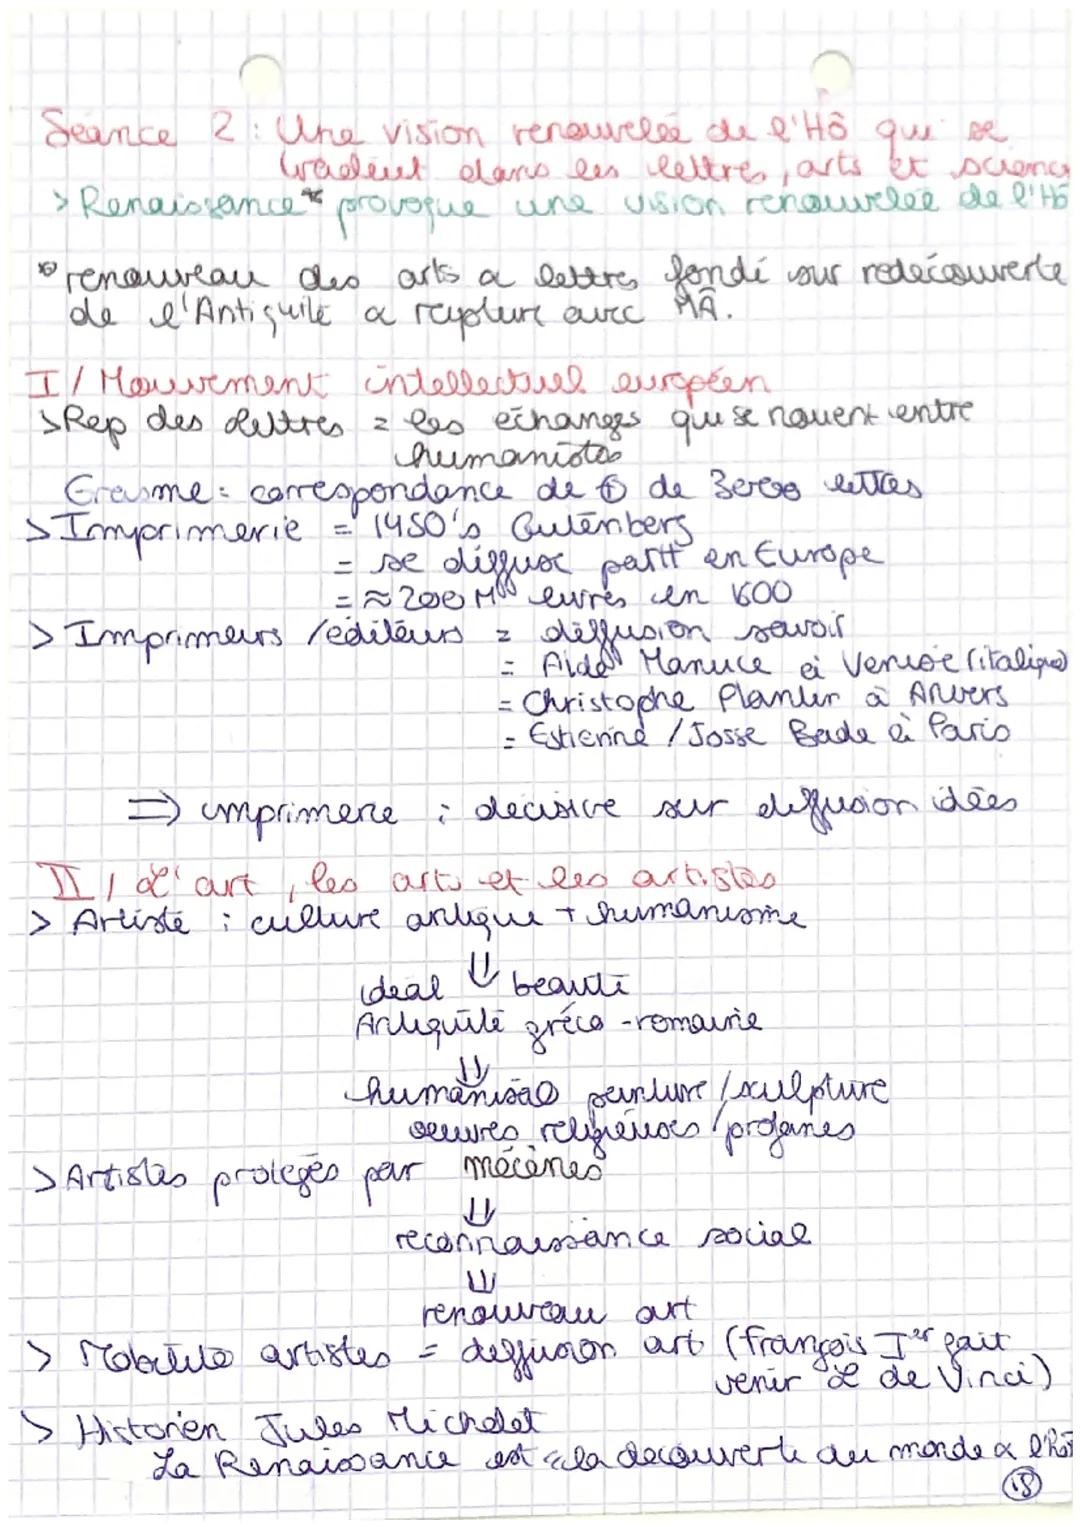 Séance 2 : Une vision renouvelée de l'Hô qui se
tradeut dans les lettres, arts et science
> Renaissance* provoque une vision renouvelée de l'Hô
* renouveau des arts & lettres fondé sur redécouverte
de l'Antiquité & rupture avec MÂ.
I / Mouvement intellectuel européen
> Rep des lettres = les échanges qui se nouent entre
humanistes
Erasme = correspondance de ⊕ de 3000 lettres
> Imprimerie = 1450's Gutenberg
= se diffuse partt en Europe
= ≈ 200 M livres en 1600
> Imprimeurs / éditeurs = diffusion savoir
= Alde Manuce à Venise (italique)
= Christophe Plantin à Anvers
= Estienne / Josse Bade à Paris
=> imprimerie : décisive sur diffusion idées
II / L'art, les arts et les artistes
> Artiste : culture antique + humanisme
⇓
idéal beauté
Antiquité gréco-romaine
⇓
humanisa° peinture / sculpture
oeuvres religieuses / profanes
> Artistes protégés par mécènes
⇓
reconnaissance social
⇓
renouveau art
> Mobilité artistes = diffusion art (François Ier fait
venir L de Vinci)
> Historien Jules Michelet
La Renaissance est « la découverte du monde & l'hô
18